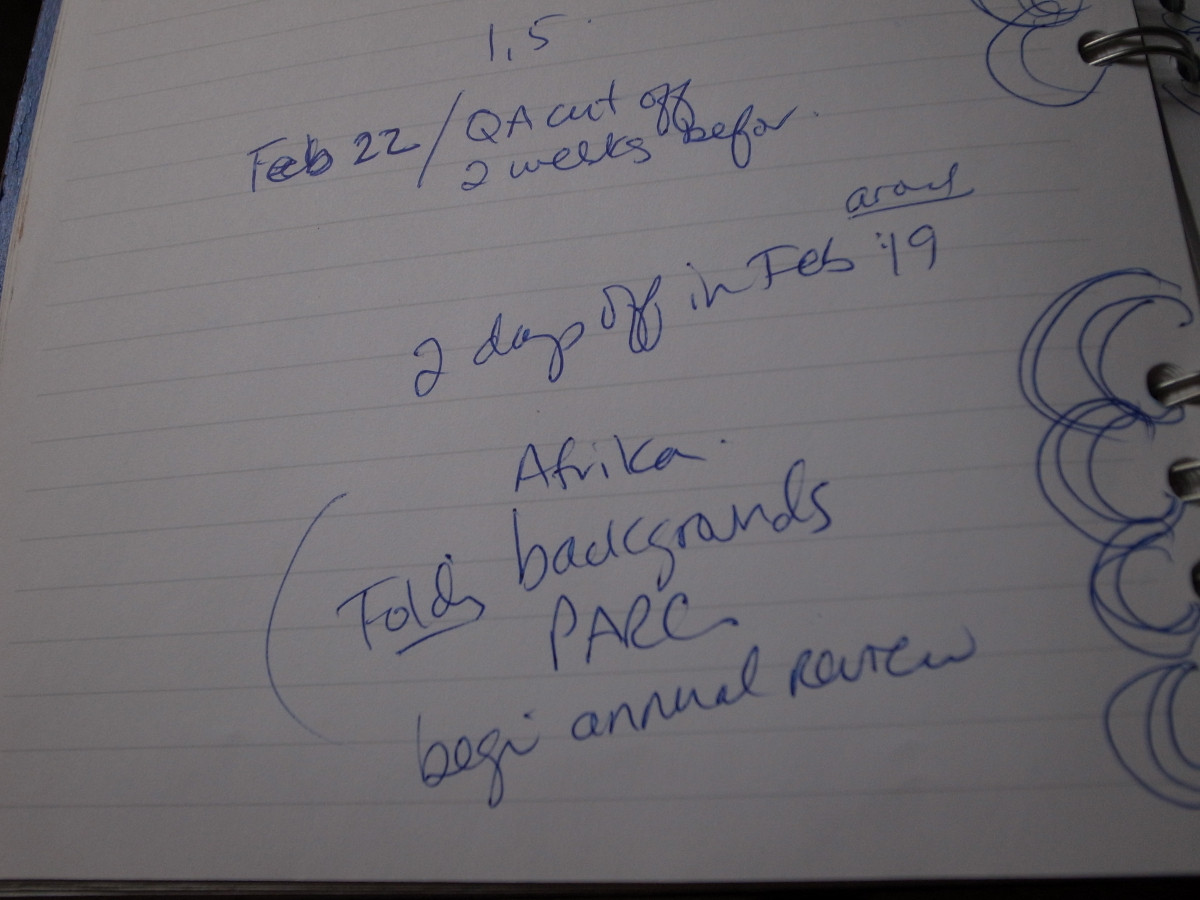 1,5
Feb 22 / QA cut off
2 weeks befor.
2 days off in Feb '19
Afrika
backgrounds
PARC
begi annual review